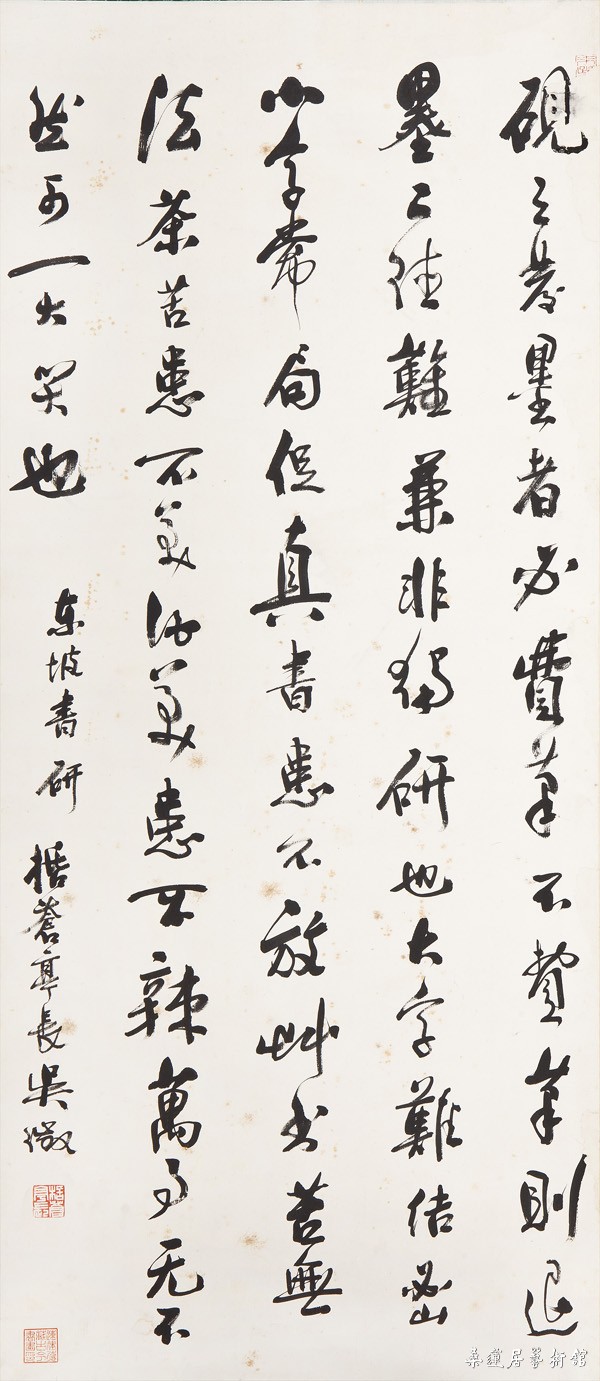 硯之發墨者必費筆不費筆則退
墨二德難兼非獨研也大字難結密
小字常局促真書患不放艸書苦無
法茶苦患不美酒美患不辣萬事无不
然可一大笑也
東坡書研 括蒼亭長吳徵
桑蓮居藝術館